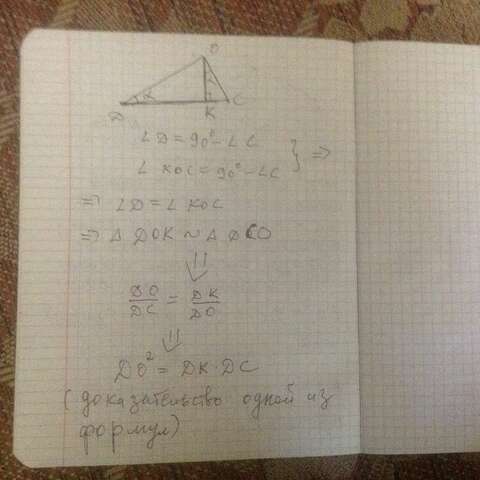 O
α
D K C
∠D = 90° - ∠C
∠KOC = 90° - ∠C } ⇒
⇒ ∠D = ∠KOC
⇒ △DOK ~ △DCO
⇓
DO/DC = DK/DO
⇓
DO² = DK·DC
(доказательство одной из
формул)